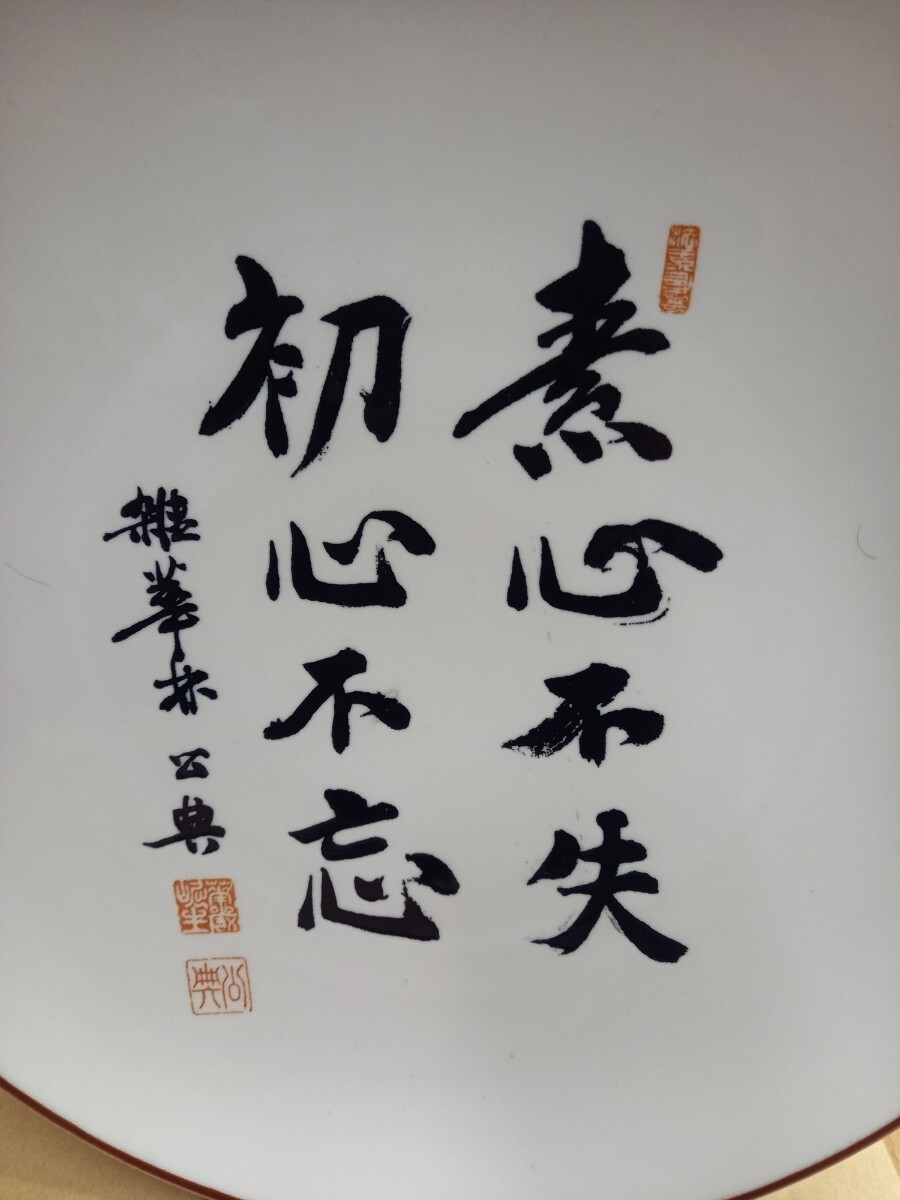 素心不失
初心不忘
雜華林 公典
公典